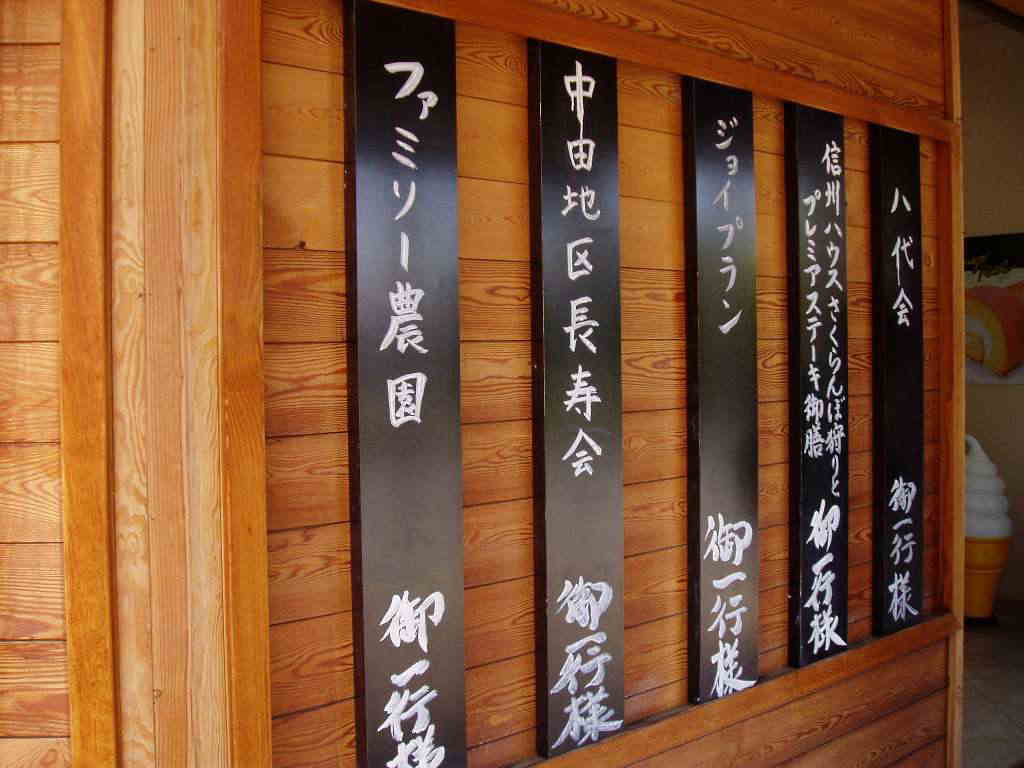 八代会 御一行様
信州ハウスさくらんぼ狩りと
プレミアステーキ御膳 御一行様
ジョイプラン 御一行様
中田地区長寿会 御一行様
ファミリー農園 御一行様